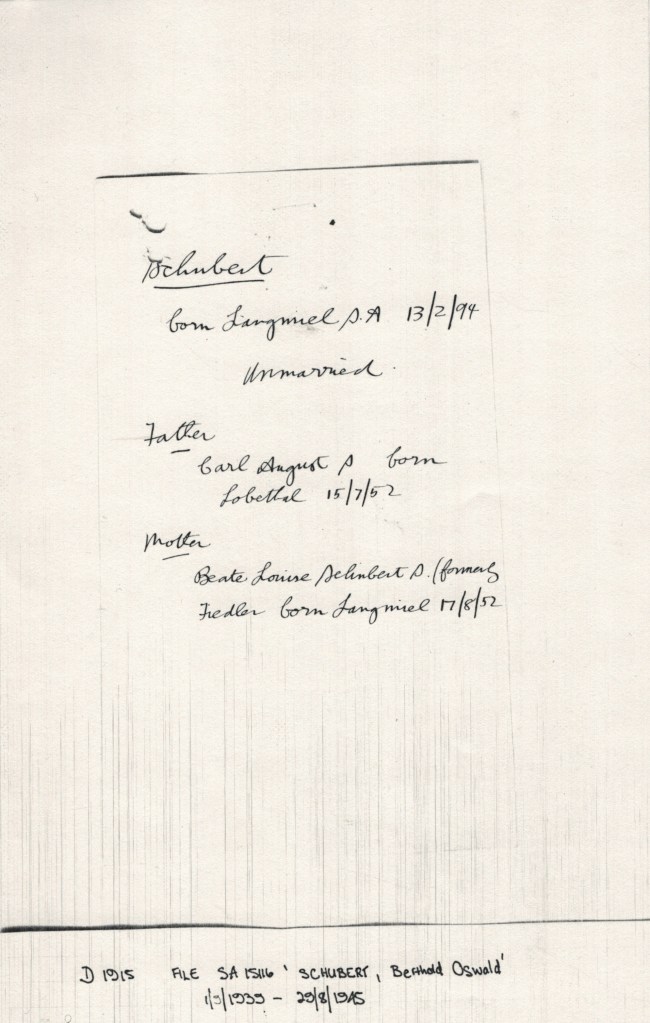 Schubert
born Langmiel S.A 13/2/94
Unmarried.
Father
Carl August S born
Lobethal 15/7/52
Mother
Beate Louise Schubert S. (formerly
Fiedler born Langmiel 17/8/52
D 1915 FILE SA 15116 ' SCHUBERT, Berthold Oswald'
1/9/1939 - 29/8/1945